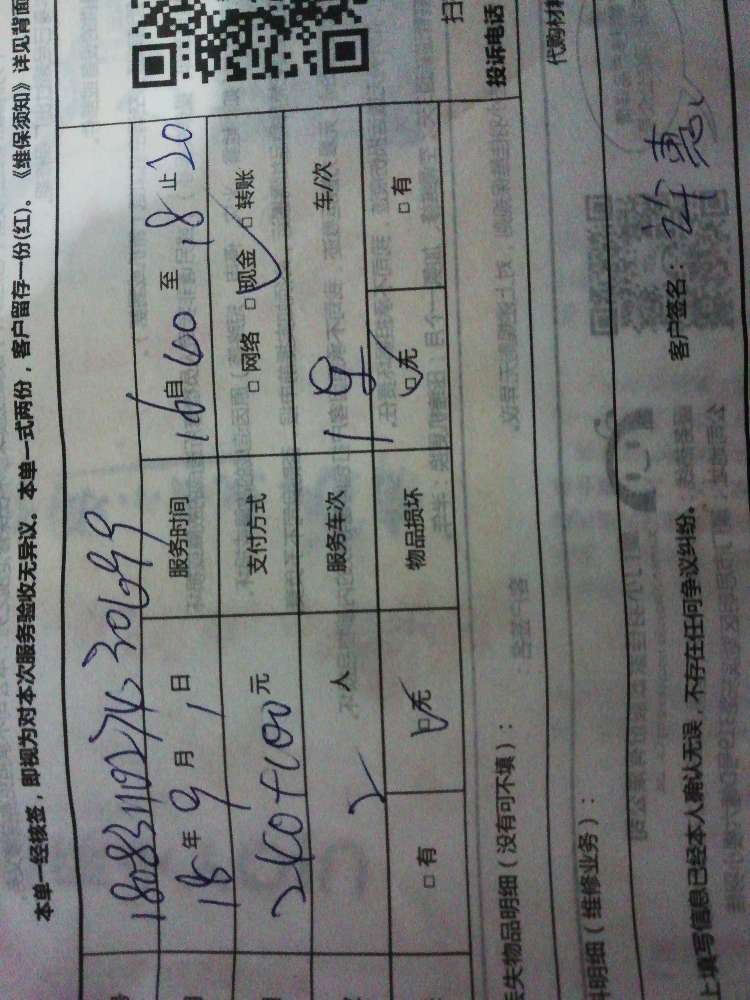 本单一经核签，即视为对本次服务验收无异议。本单一式两份，客户留存一份(红)。《维保须知》详见背面
号 180831102743306999
18年9月1日 服务时间 16自60至18止20
240+100元 支付方式 □网络 □现金 □转账
2人 服务车次 1 车/次
□有 □无 物品损坏 □无 □有
投诉电话
扫
失物品明细（没有可不填）：
代购材料
料明细（维修业务）：
上填写信息已经本人确认无误，不存在任何争议纠纷。 客户签名：